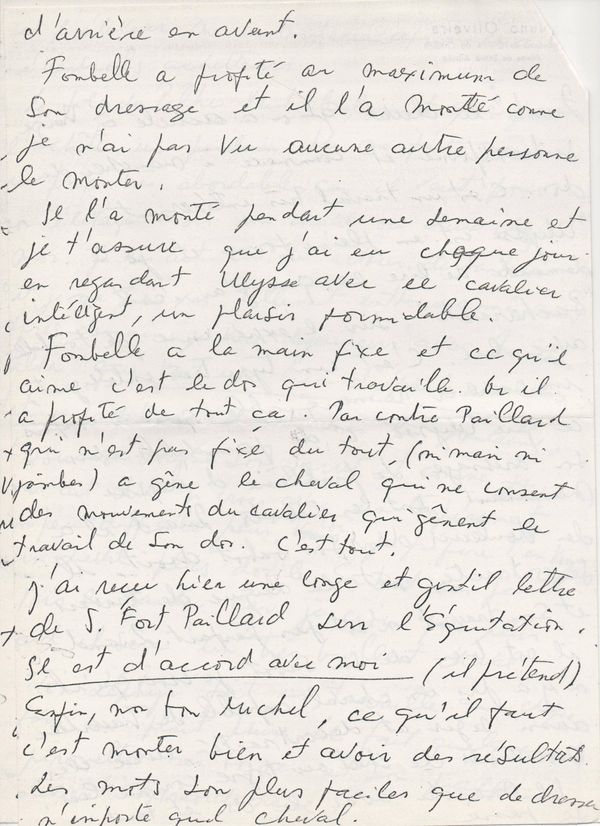 d'arrière en avant.
Fombelle a profité au maximum de
son dressage et il l'a montté comme
je n'ai pas vu aucune autre personne
le monter.
Il l'a monté pendant une semaine et
je t'assure que j'ai eu chaque jour
en regardant Ulysse avec ce cavalier
intélligent, un plaisir formidable.
Fombelle a la main fixe et ce qu'il
aime c'est le dos qui travaille. Or il
a profité de tout ça. Par contre Paillard
qui n'est pas fixé du tout, (ni main ni
jambes) a gêné le cheval qui ne consent
des mouvements du cavalier qui gênent le
travail de son dos. C'est tout.
J'ai reçu hier une longe et gentil lettre
de S. Fort Paillard sur l'Equitation.
Il est d'accord avec moi (il prétend)
Enfin, mon bon Michel, ce qu'il faut
c'est monter bien et avoir des résultats.
Les mots son plus faciles que de dresser
n'importe quel cheval.